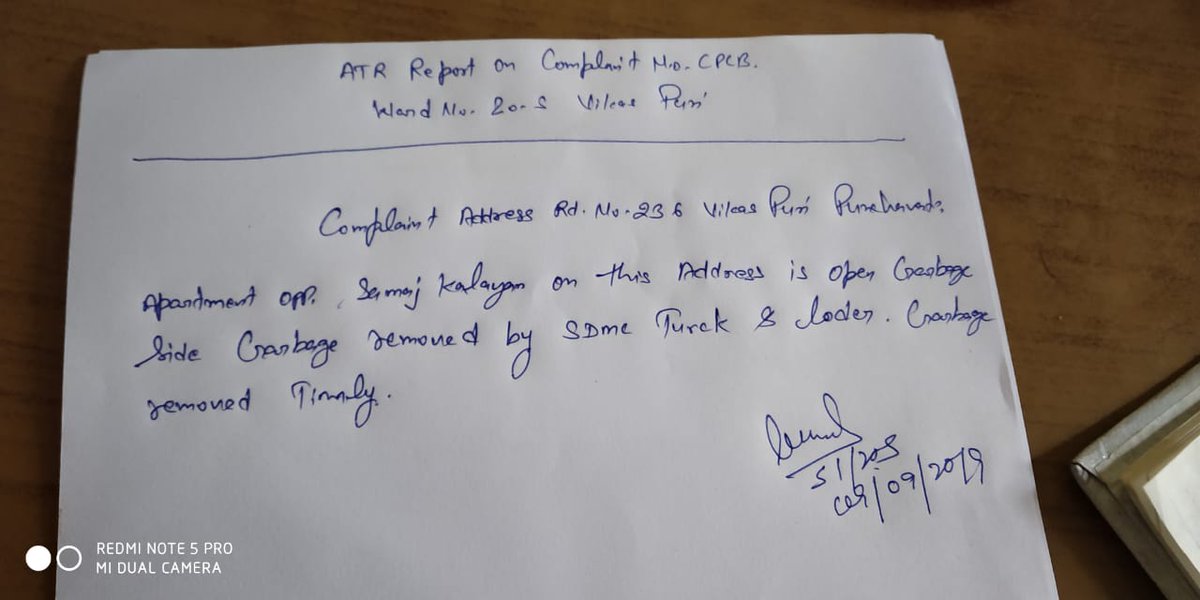 ATR Report on Complaint No. CPCB.
Ward No. 20-S Vikas Puri
Complaint Address Rd. No. 236 Vikas Puri
Apartment opp. Samaj Kalayan on this Address is open Garbage
Side Garbage removed by SDMC Turck & loder. Garbage
removed Timmly.
SI/20S
09/09/2019
REDMI NOTE 5 PRO
MI DUAL CAMERA